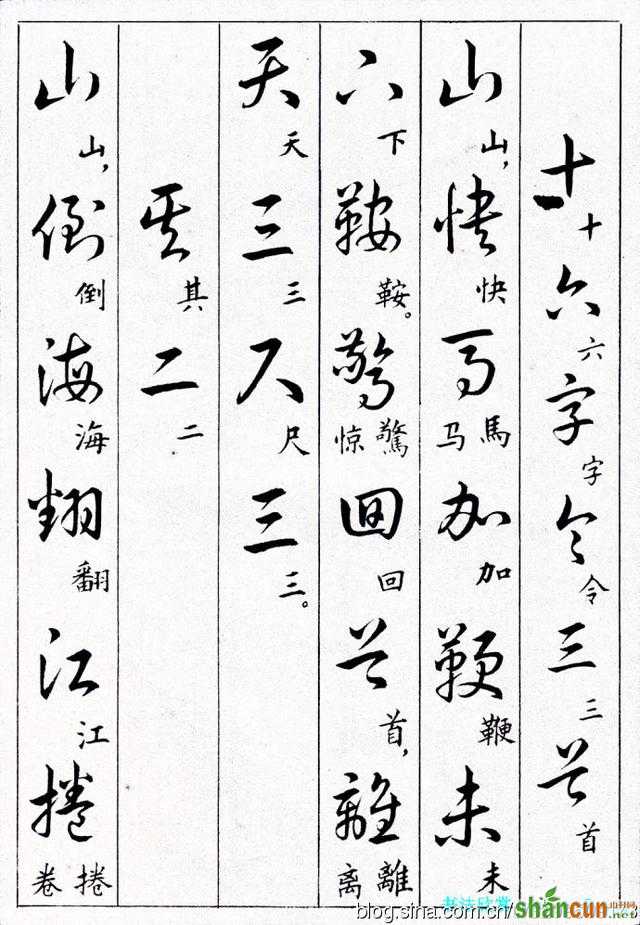 十六字令三首
十六字令三首
山快馬加鞭未
山，快馬马加鞭未
下鞍驚回首離
下鞍。驚惊回首，離离
天三尺三
天三尺三。
其二
其二
山倒海翻江捲
山，倒海翻江捲卷
blog.sina.com.cn/
shancun